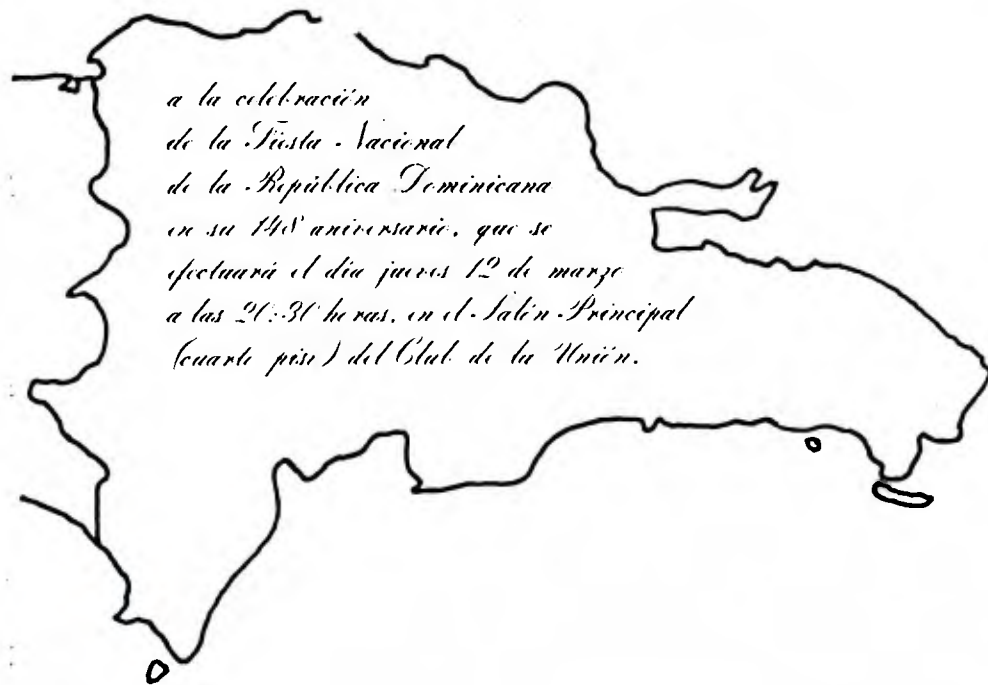 a la celebración
de la Fiesta Nacional
de la República Dominicana
en su 148 aniversario, que se
efectuará el día jueves 12 de marzo
a las 20:30 horas, en el Salón Principal
(cuarto piso) del Club de la Unión.